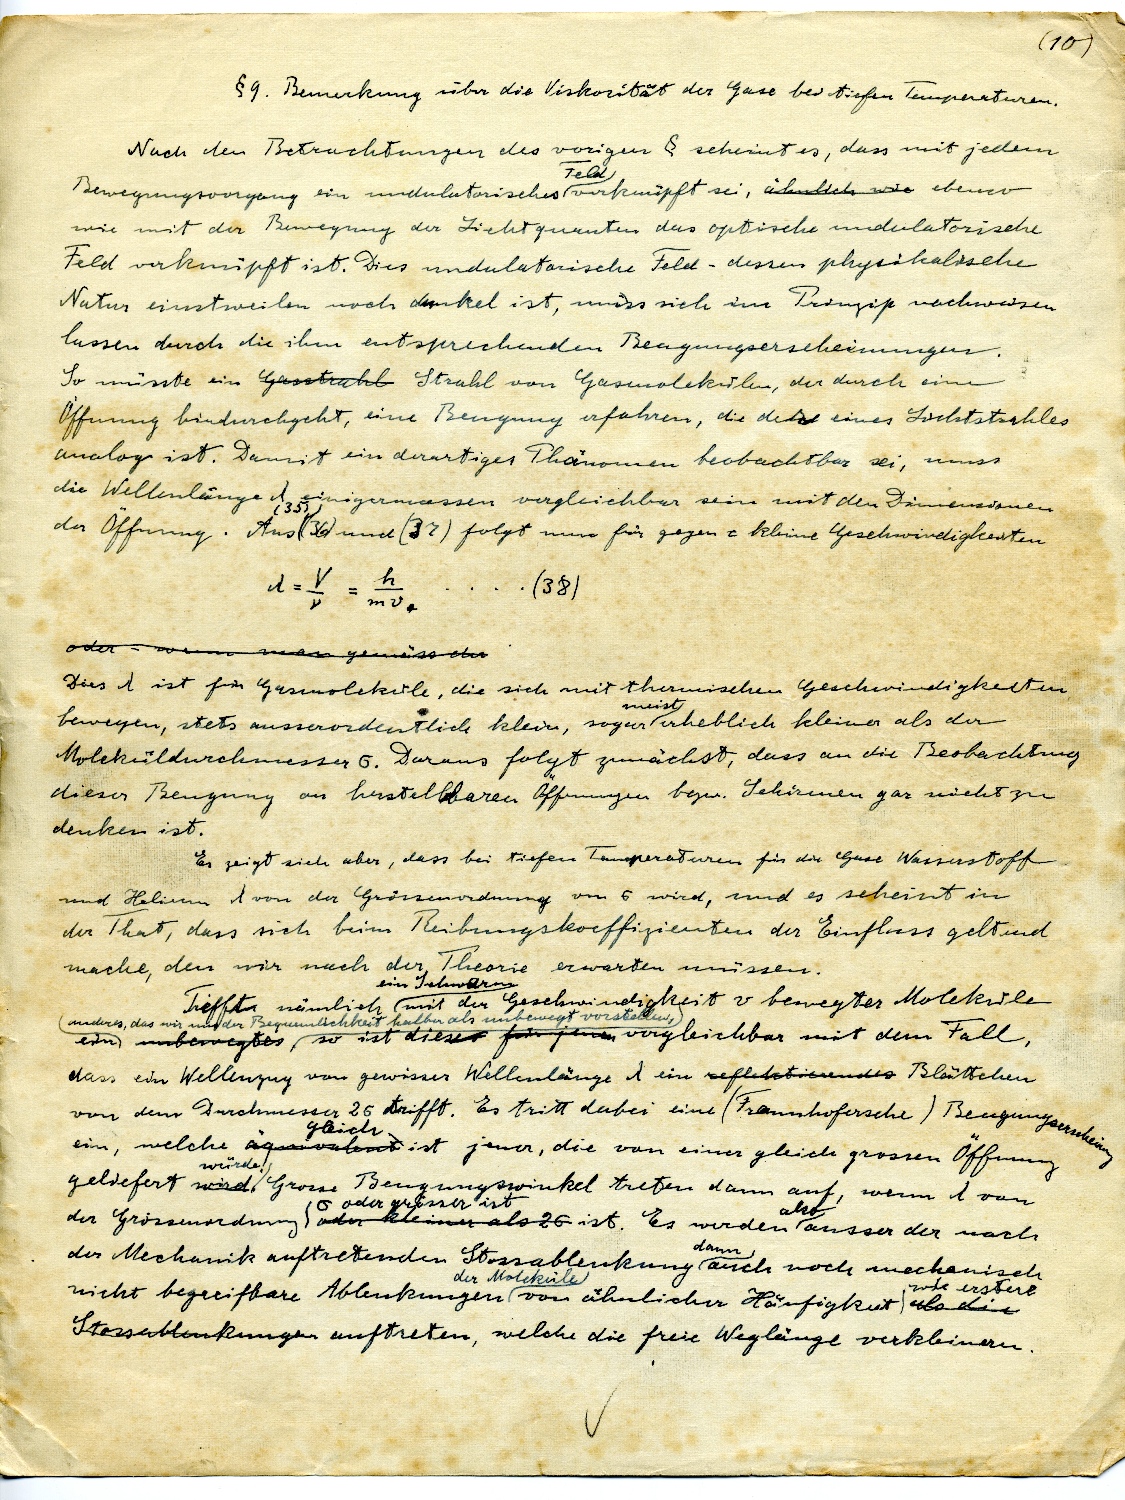 (10)
§ 9. Bemerkung über die Viskosität der Gase bei tiefen Temperaturen.
Nach den Betrachtungen des vorigen § scheint es, dass mit jedem
Feld
Bewegungsvorgang ein undulatorisches verknüpft sei, ähnlich wie ebenso
wie mit der Bewegung der Lichtquanten das optische undulatorische
Feld verknüpft ist. Dies undulatorische Feld - dessen physikalische
Natur einstweilen noch dunkel ist, muss sich im Prinzip nachweisen
lassen durch die ihm entsprechenden Beugungserscheinungen.
So müsste ein Gasstrahl Strahl von Gasmolekülen, der durch eine
Öffnung hindurchgeht, eine Beugung erfahren, die der eines Lichtstrahles
analog ist. Damit ein derartiges Phänomen beobachtbar sei, muss
die Wellenlänge λ einigermassen vergleichbar sein mit den Dimensionen
(35),
der Öffnung. Aus (36) und (37) folgt nun für gegen c kleine Geschwindigkeiten
λ = V/ν = h/mv . . . . . (38)
oder - wenn man gemäss der
Dies λ ist für Gasmoleküle, die sich mit thermischen Geschwindigkeiten
meist
bewegen, stets ausserordentlich klein, sogar erheblich kleiner als der
Moleküldurchmesser σ. Daraus folgt zunächst, dass an die Beobachtung
dieser Beugung an herstellbaren Öffnungen bezw. Schirmen gar nicht zu
denken ist.
Es zeigt sich aber, dass bei tiefen Temperaturen für die Gase Wasserstoff
und Helium λ von der Grössenordnung von σ wird, und es scheint in
der That, dass sich beim Reibungskoeffizienten der Einfluss geltend
mache, den wir nach der Theorie erwarten müssen.
ein Schwarm
Trifft nämlich mit der Geschwindigkeit v bewegter Moleküle
anderes, das wir uns der Bequemlichkeit halber als unbewegt vorstellen,
ein unbewegtes, so ist dieses für jenen vergleichbar mit dem Fall,
dass ein Wellenzug von gewisser Wellenlänge λ ein reflektierendes Blättchen
von dem Durchmesser 2σ trifft. Es tritt dabei eine (Fraunhofersche) Beugungserscheinung
gleich
ein, welche äquivalent ist jener, die von einer gleich grossen Öffnung
würde.
geliefert wird. Grosse Beugungswinkel treten dann auf, wenn λ von
σ oder grösser ist also
der Grössenordnung oder kleiner als 2σ ist. Es werden ausser der nach
dann
der Mechanik auftretenden Stossablenkung auch noch mechanisch
der Moleküle wie erstere
nicht begreifbare Ablenkungen von ähnlicher Häufigkeit als die
Stossablenkungen auftreten, welche die freie Weglänge verkleinern.